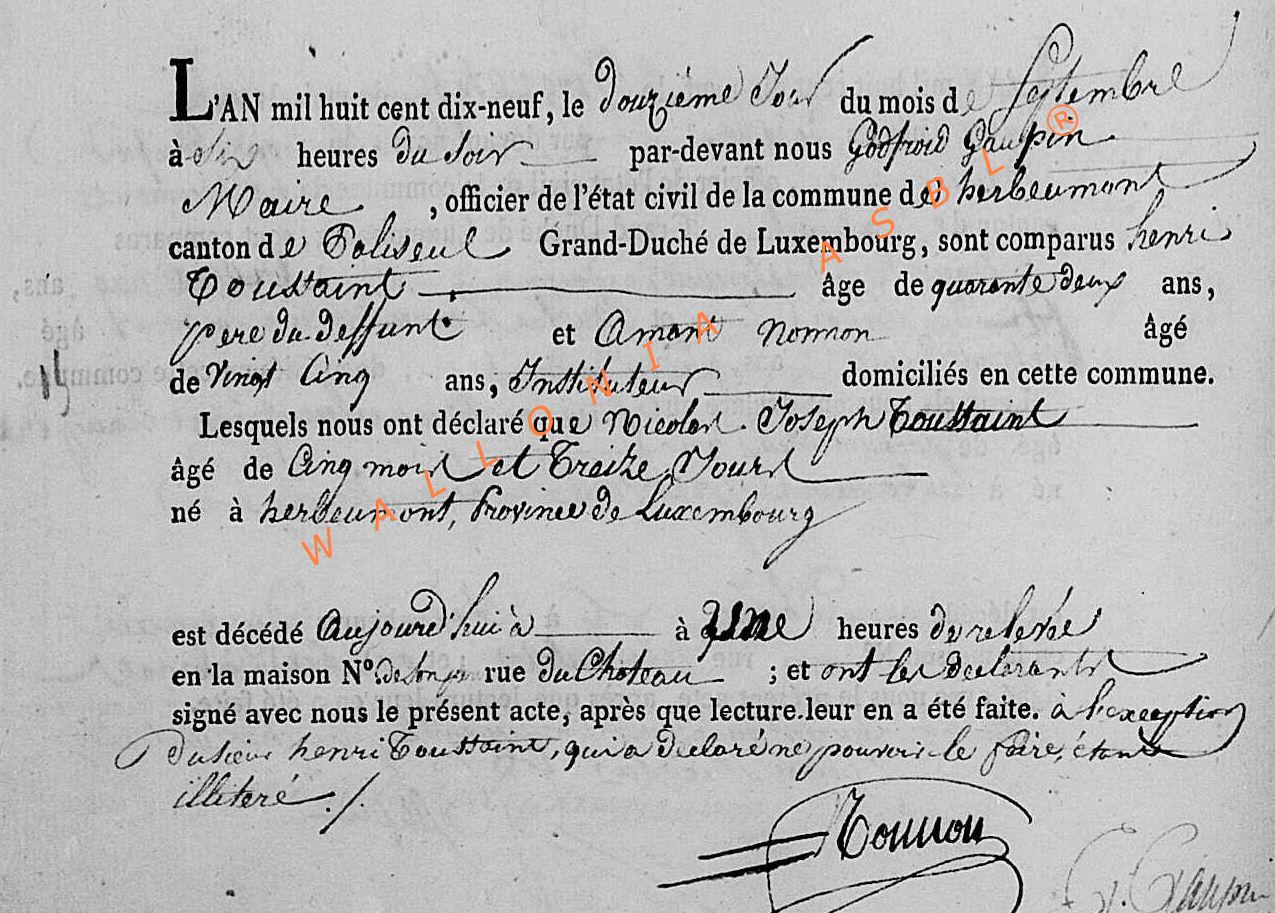 L'AN mil huit cent dix-neuf, le douzième Jour du mois de Septembre
à Six heures du Soir par-devant nous Godfroid Gaupin
Maire, officier de l'état civil de la commune de herbeumont
canton de Paliseul Grand-Duché de Luxembourg, sont comparus henri
Toussaint âge de quarante deux ans,
pere du deffunt et Amant Nonnon âgé
de Vingt Cinq ans, Instituteur domiciliés en cette commune.
15
Lesquels nous ont déclaré que Nicolas Joseph Toussaint
âgé de Cinq mois et Treize Jours
né à herbeumont, Province de Luxembourg
est décédé Aujourd'hui à à une heures de relevée
en la maison N° de son pere rue du Chateau ; et ont les declarants
signé avec nous le présent acte, après que lecture leur en a été faite. à l'exception
du sieur henri Toussaint, qui a declaré ne pouvoir le faire, étant
illiteré ./.
Nonnon
G. Gaupin
WALLONIA ASBL ®